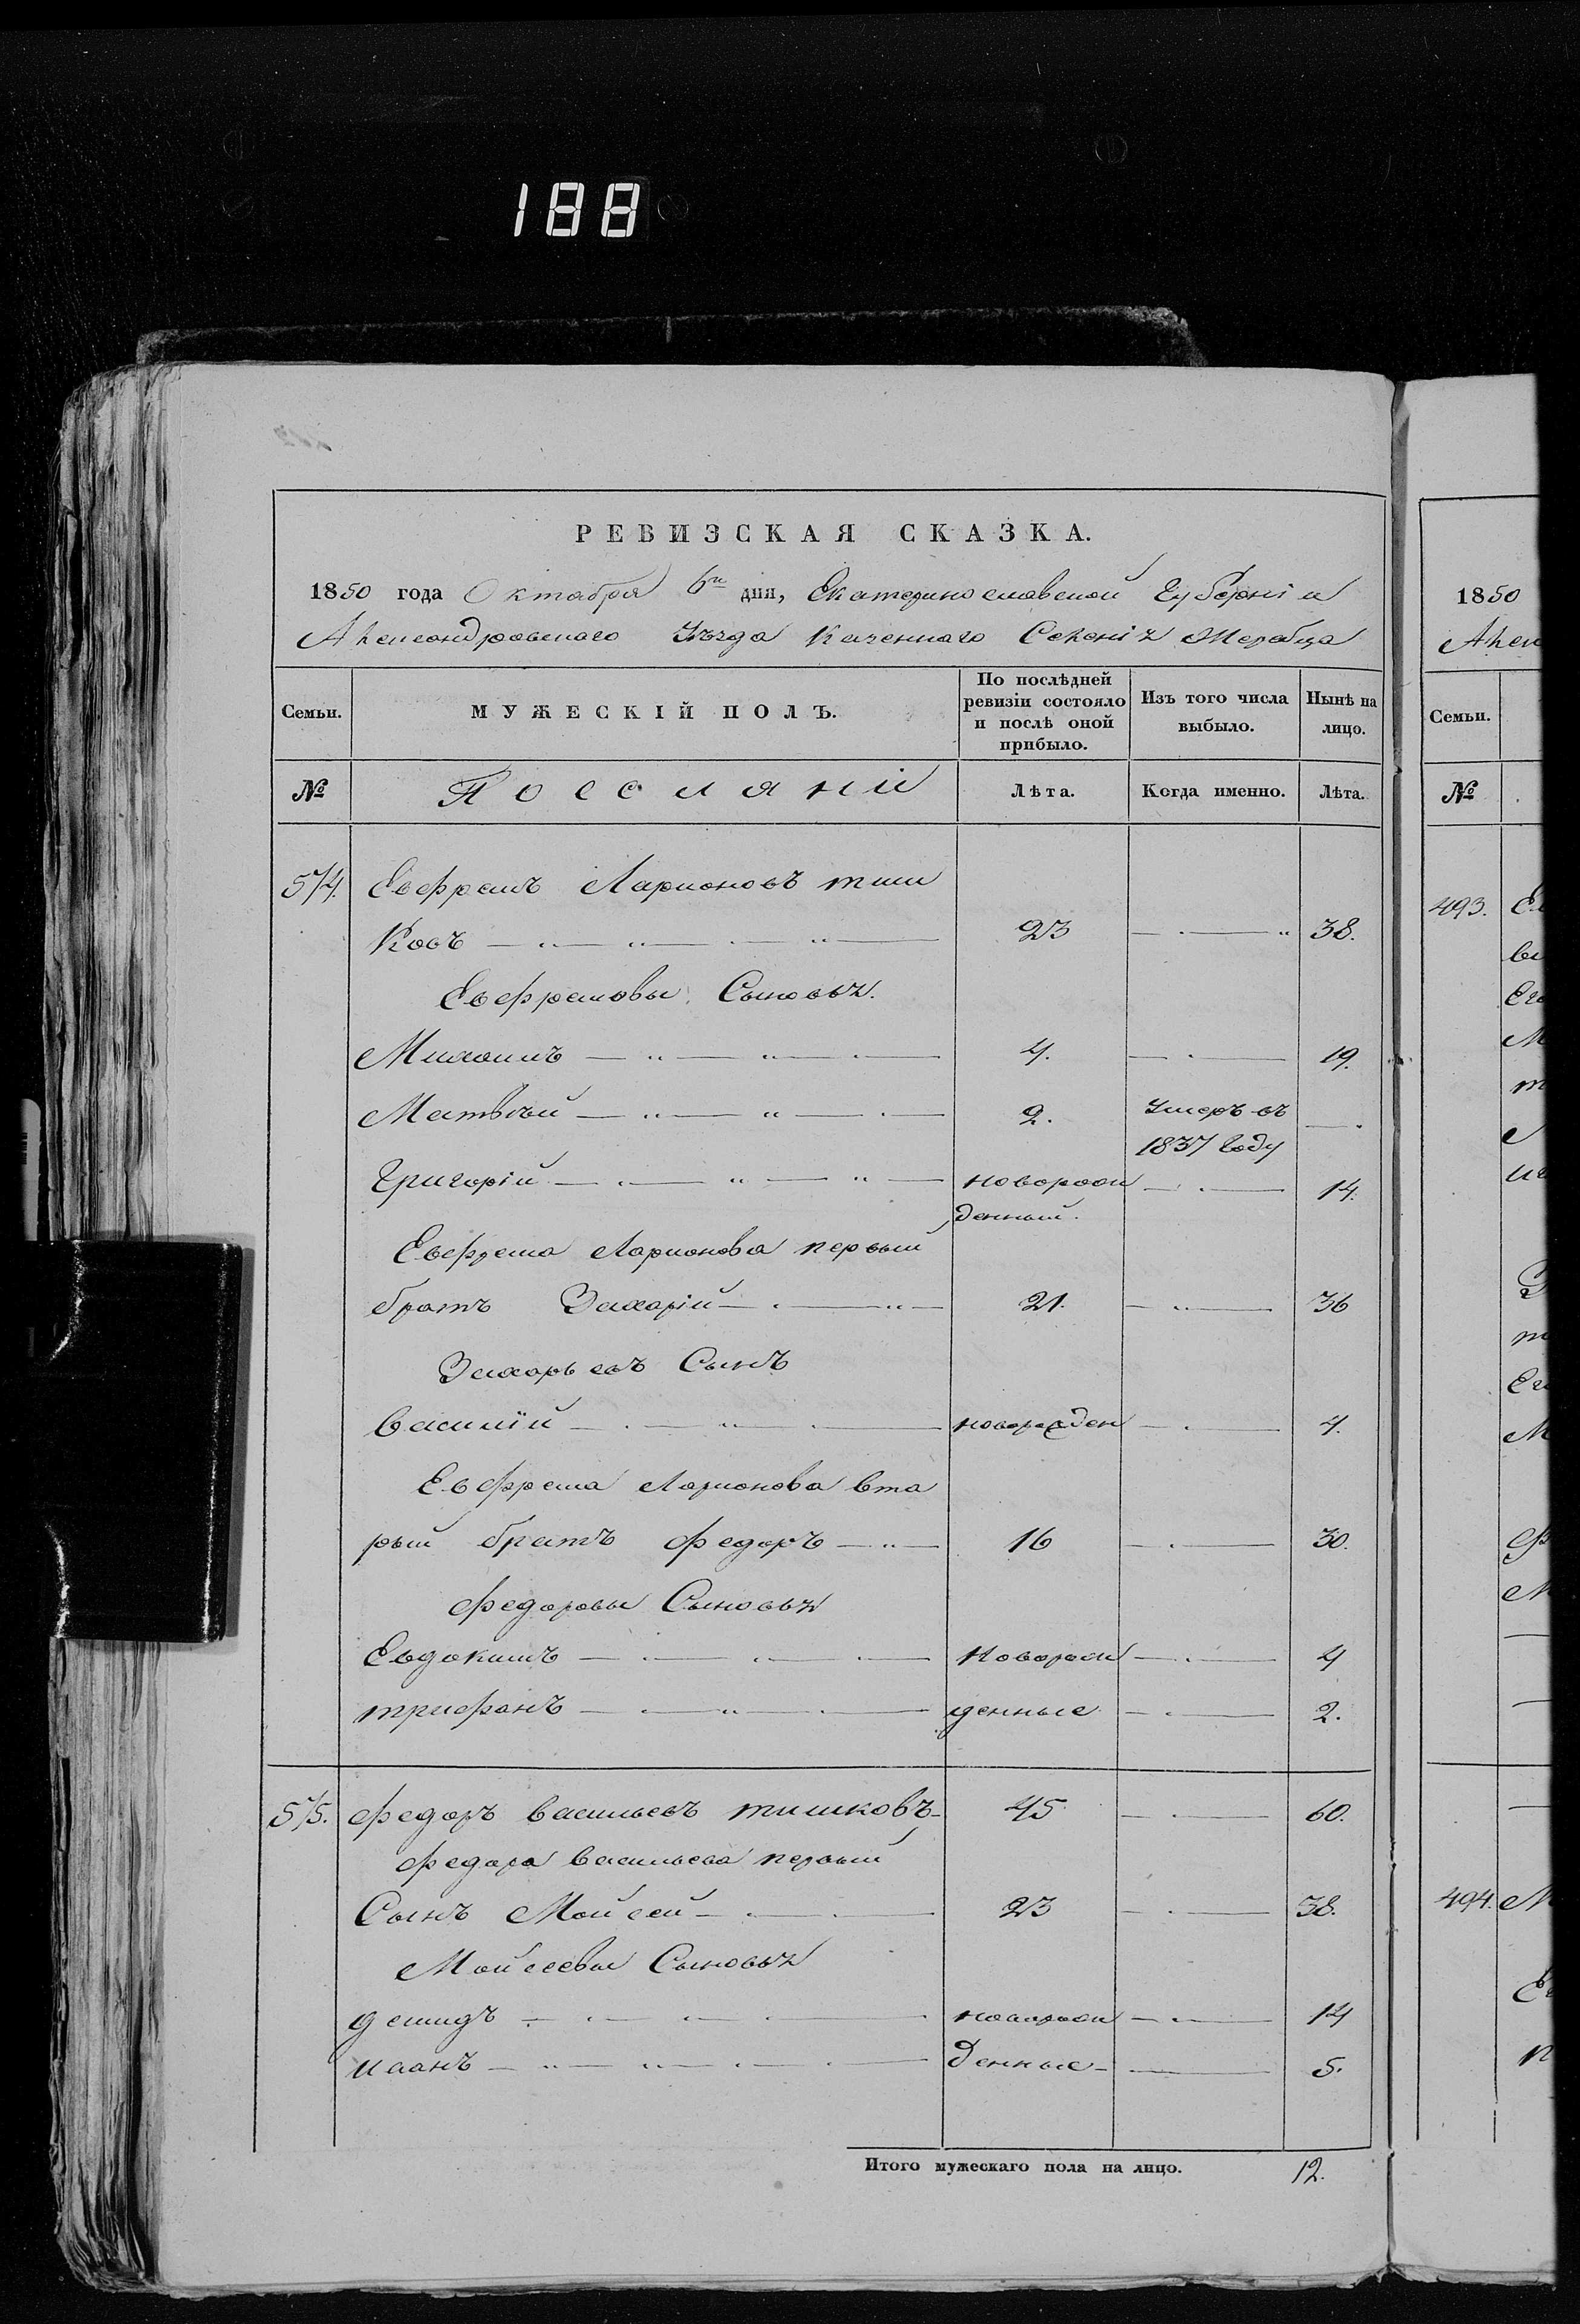 188
РЕВИЗСКАЯ СКАЗКА.
1850 года Октября 6го дня, Екатеринославской Губерніи
Александровскаго Уѣзда Казеннаго Селенія Жеребца
Семьи.
МУЖЕСКІЙ ПОЛЪ.
По послѣдней ревизіи состояло и послѣ оной прибыло.
Изъ того числа выбыло.
Нынѣ на лицо.
№
Поселяніи
Лѣта.
Когда именно.
Лѣта.
Евфремъ Ларионовъ тиш
ковъ 23 38.
Евфремовы Сыновья.
Михаилъ 4. 19.
Матвѣй 2. Умеръ въ
1837 году
Григорій новорож 14.
денный.
Евфрема Ларионова первый
братъ Захарій 21. 36
Захарьевъ Сынъ
Василій новорожден 4.
Евфрема Ларионова вто
рый братъ федоръ 16 30.
федоровы Сыновья
Евдокимъ новорож 4
трифонъ денные 2.
федоръ васильевъ тишковъ 45 60.
федора васильева первый
Сынъ Мойсей 23 38.
Мойсеевы Сыновья
демидъ новорож 14
иванъ денные 5.
Итого мужескаго пола на лицо. 12.
1850
Алек
Семьи.
№
493.
494.